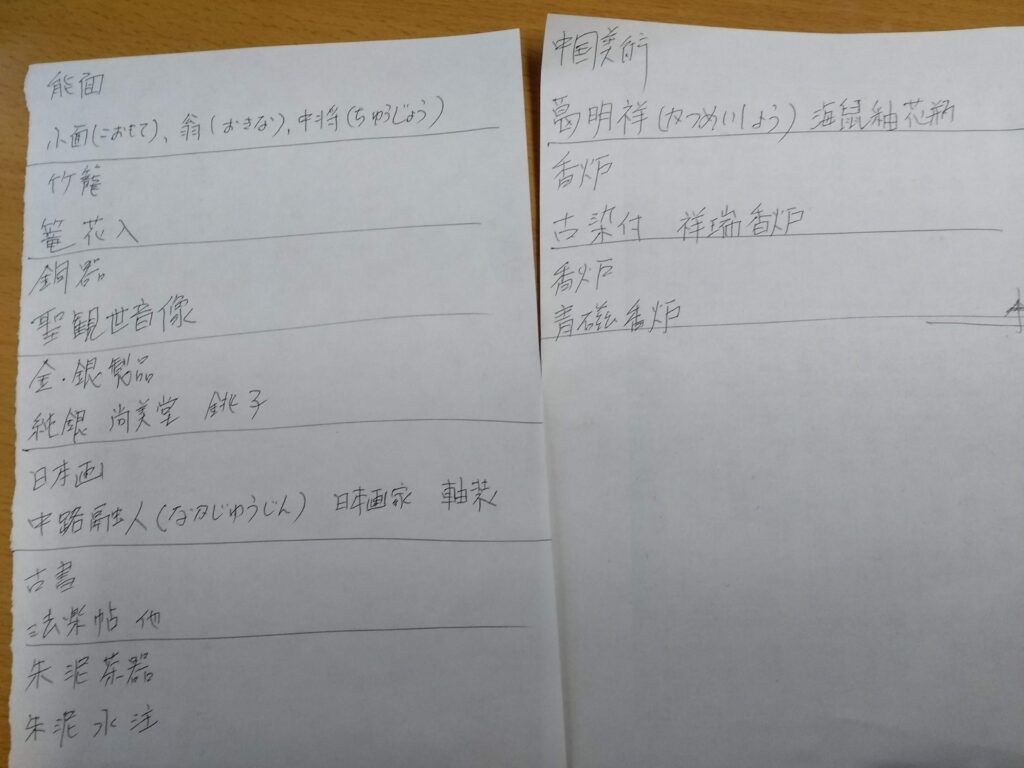 能面
小面(こおもて)、翁(おきな)、中将(ちゅうじょう)
竹籠
籠花入
銅器
聖観世音像
金・銀製品
純銀 尚美堂 銚子
日本画
中路融人(なかじゆうじん) 日本画家 軸装
古書
法楽帖 他
朱泥茶器
朱泥水注
中国美術
葛明祥(かつめいしょう) 海鼠釉花瓶
香炉
古染付 祥瑞香炉
香炉
青磁香炉